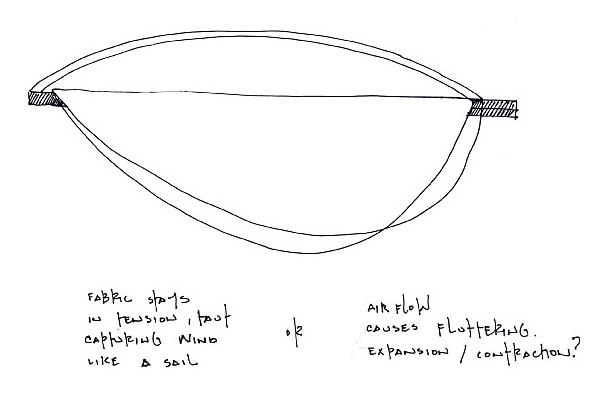 FABRIC STAYS
IN TENSION, TAUT
CAPTURING WIND
LIKE A SAIL
OR
AIR FLOW
CAUSES FLUTTERING.
EXPANSION / CONTRACTION?